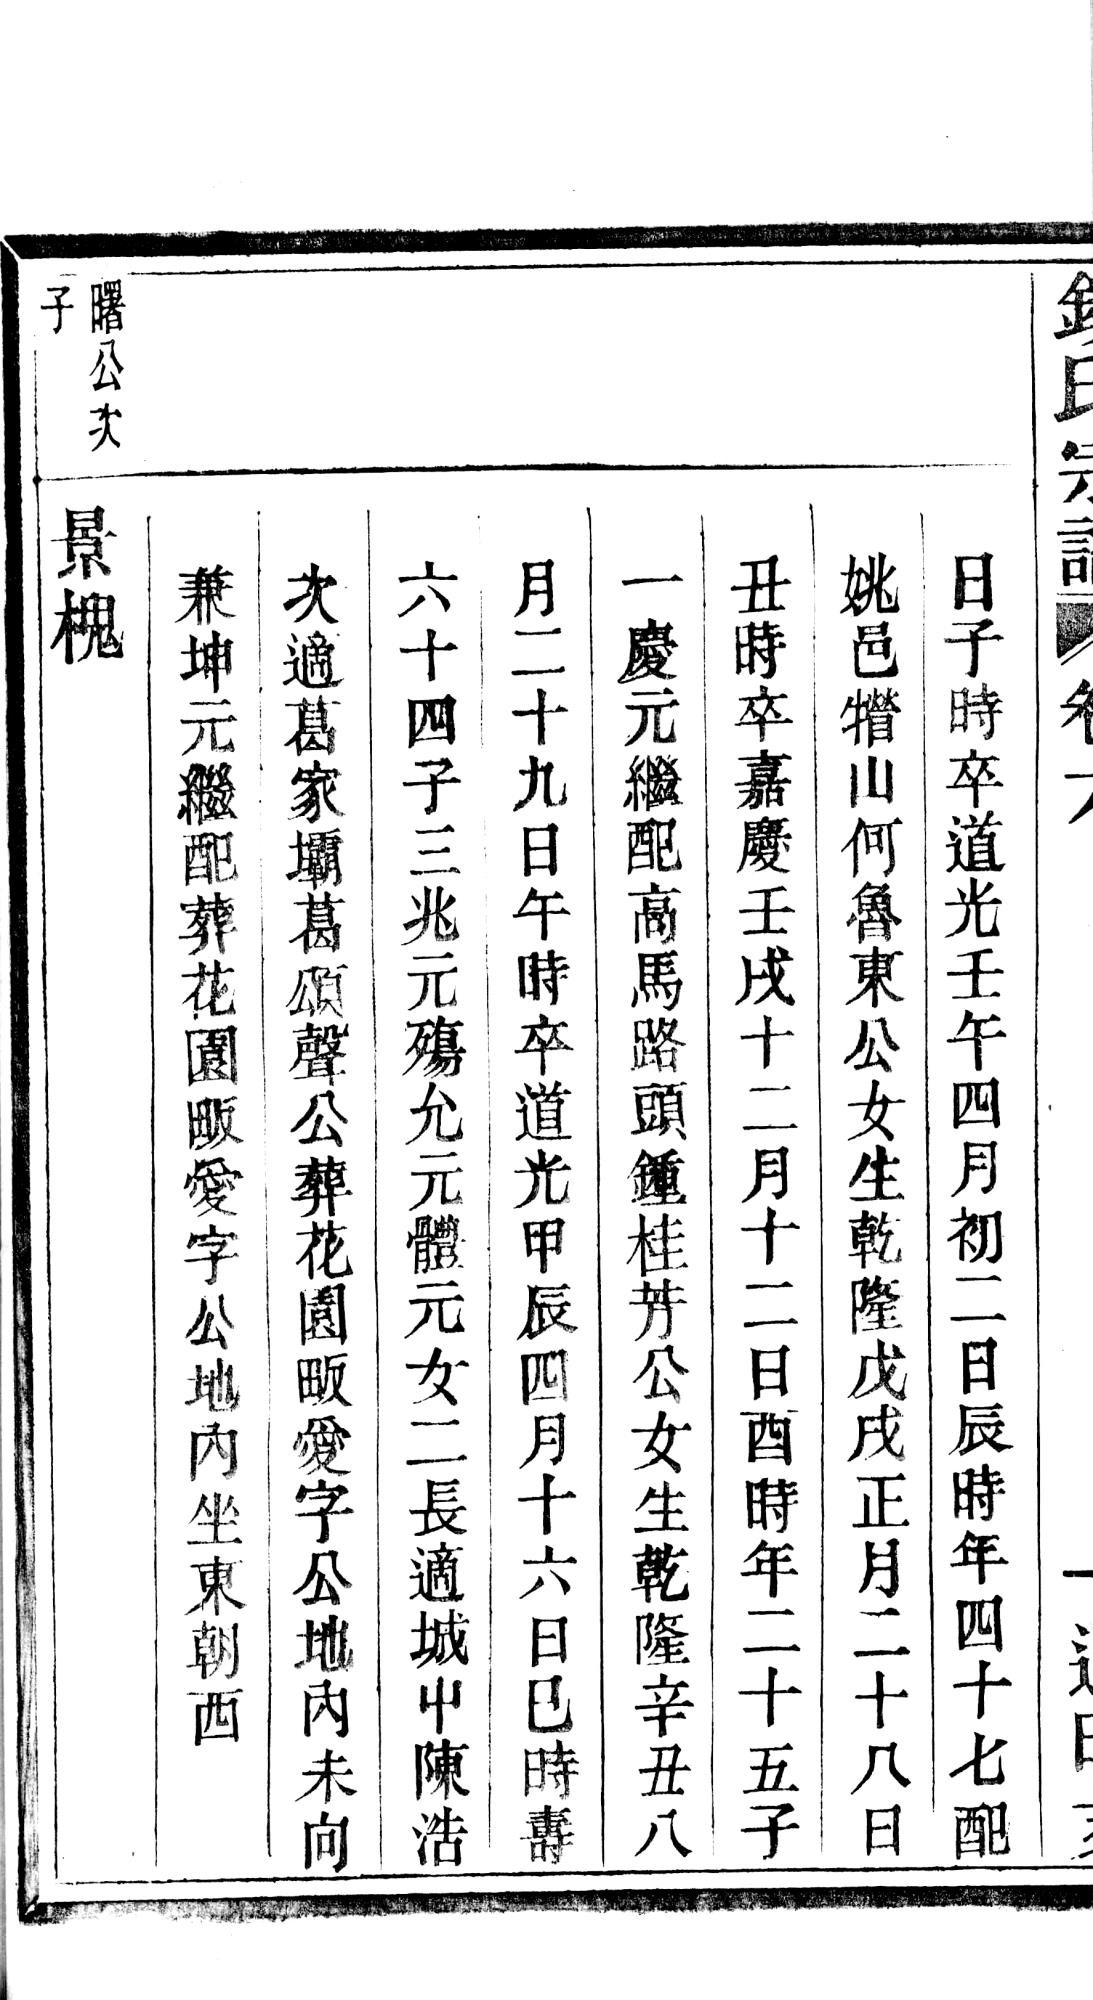 氏宗譜 卷六
日子時卒道光壬午四月初二日辰時年四十七配
姚邑㸅山何魯東公女生乾隆戊戌正月二十八日
丑時卒嘉慶壬戌十二月十二日酉時年二十五子
一慶元繼配高馬路頭鍾桂芳公女生乾隆辛丑八
月二十九日午時卒道光甲辰四月十六日巳時壽
六十四子三兆元殤允元體元女二長適城中陳浩
次適葛家壩葛頌聲公葬花園畈愛字公地內未向
兼坤元繼配葬花園畈愛字公地內坐東朝西
曙公次
子
景槐